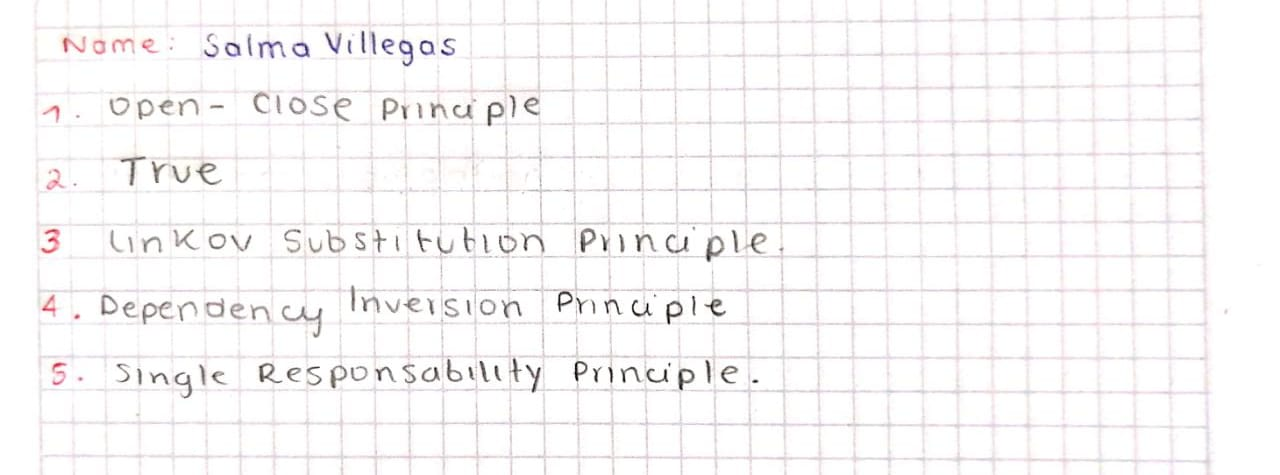 Name: Salma Villegas
1. Open - Close Principle
2. True
3 Linkov Substitution Principle.
4. Dependency Inversion Principle
5. Single Responsability Principle.